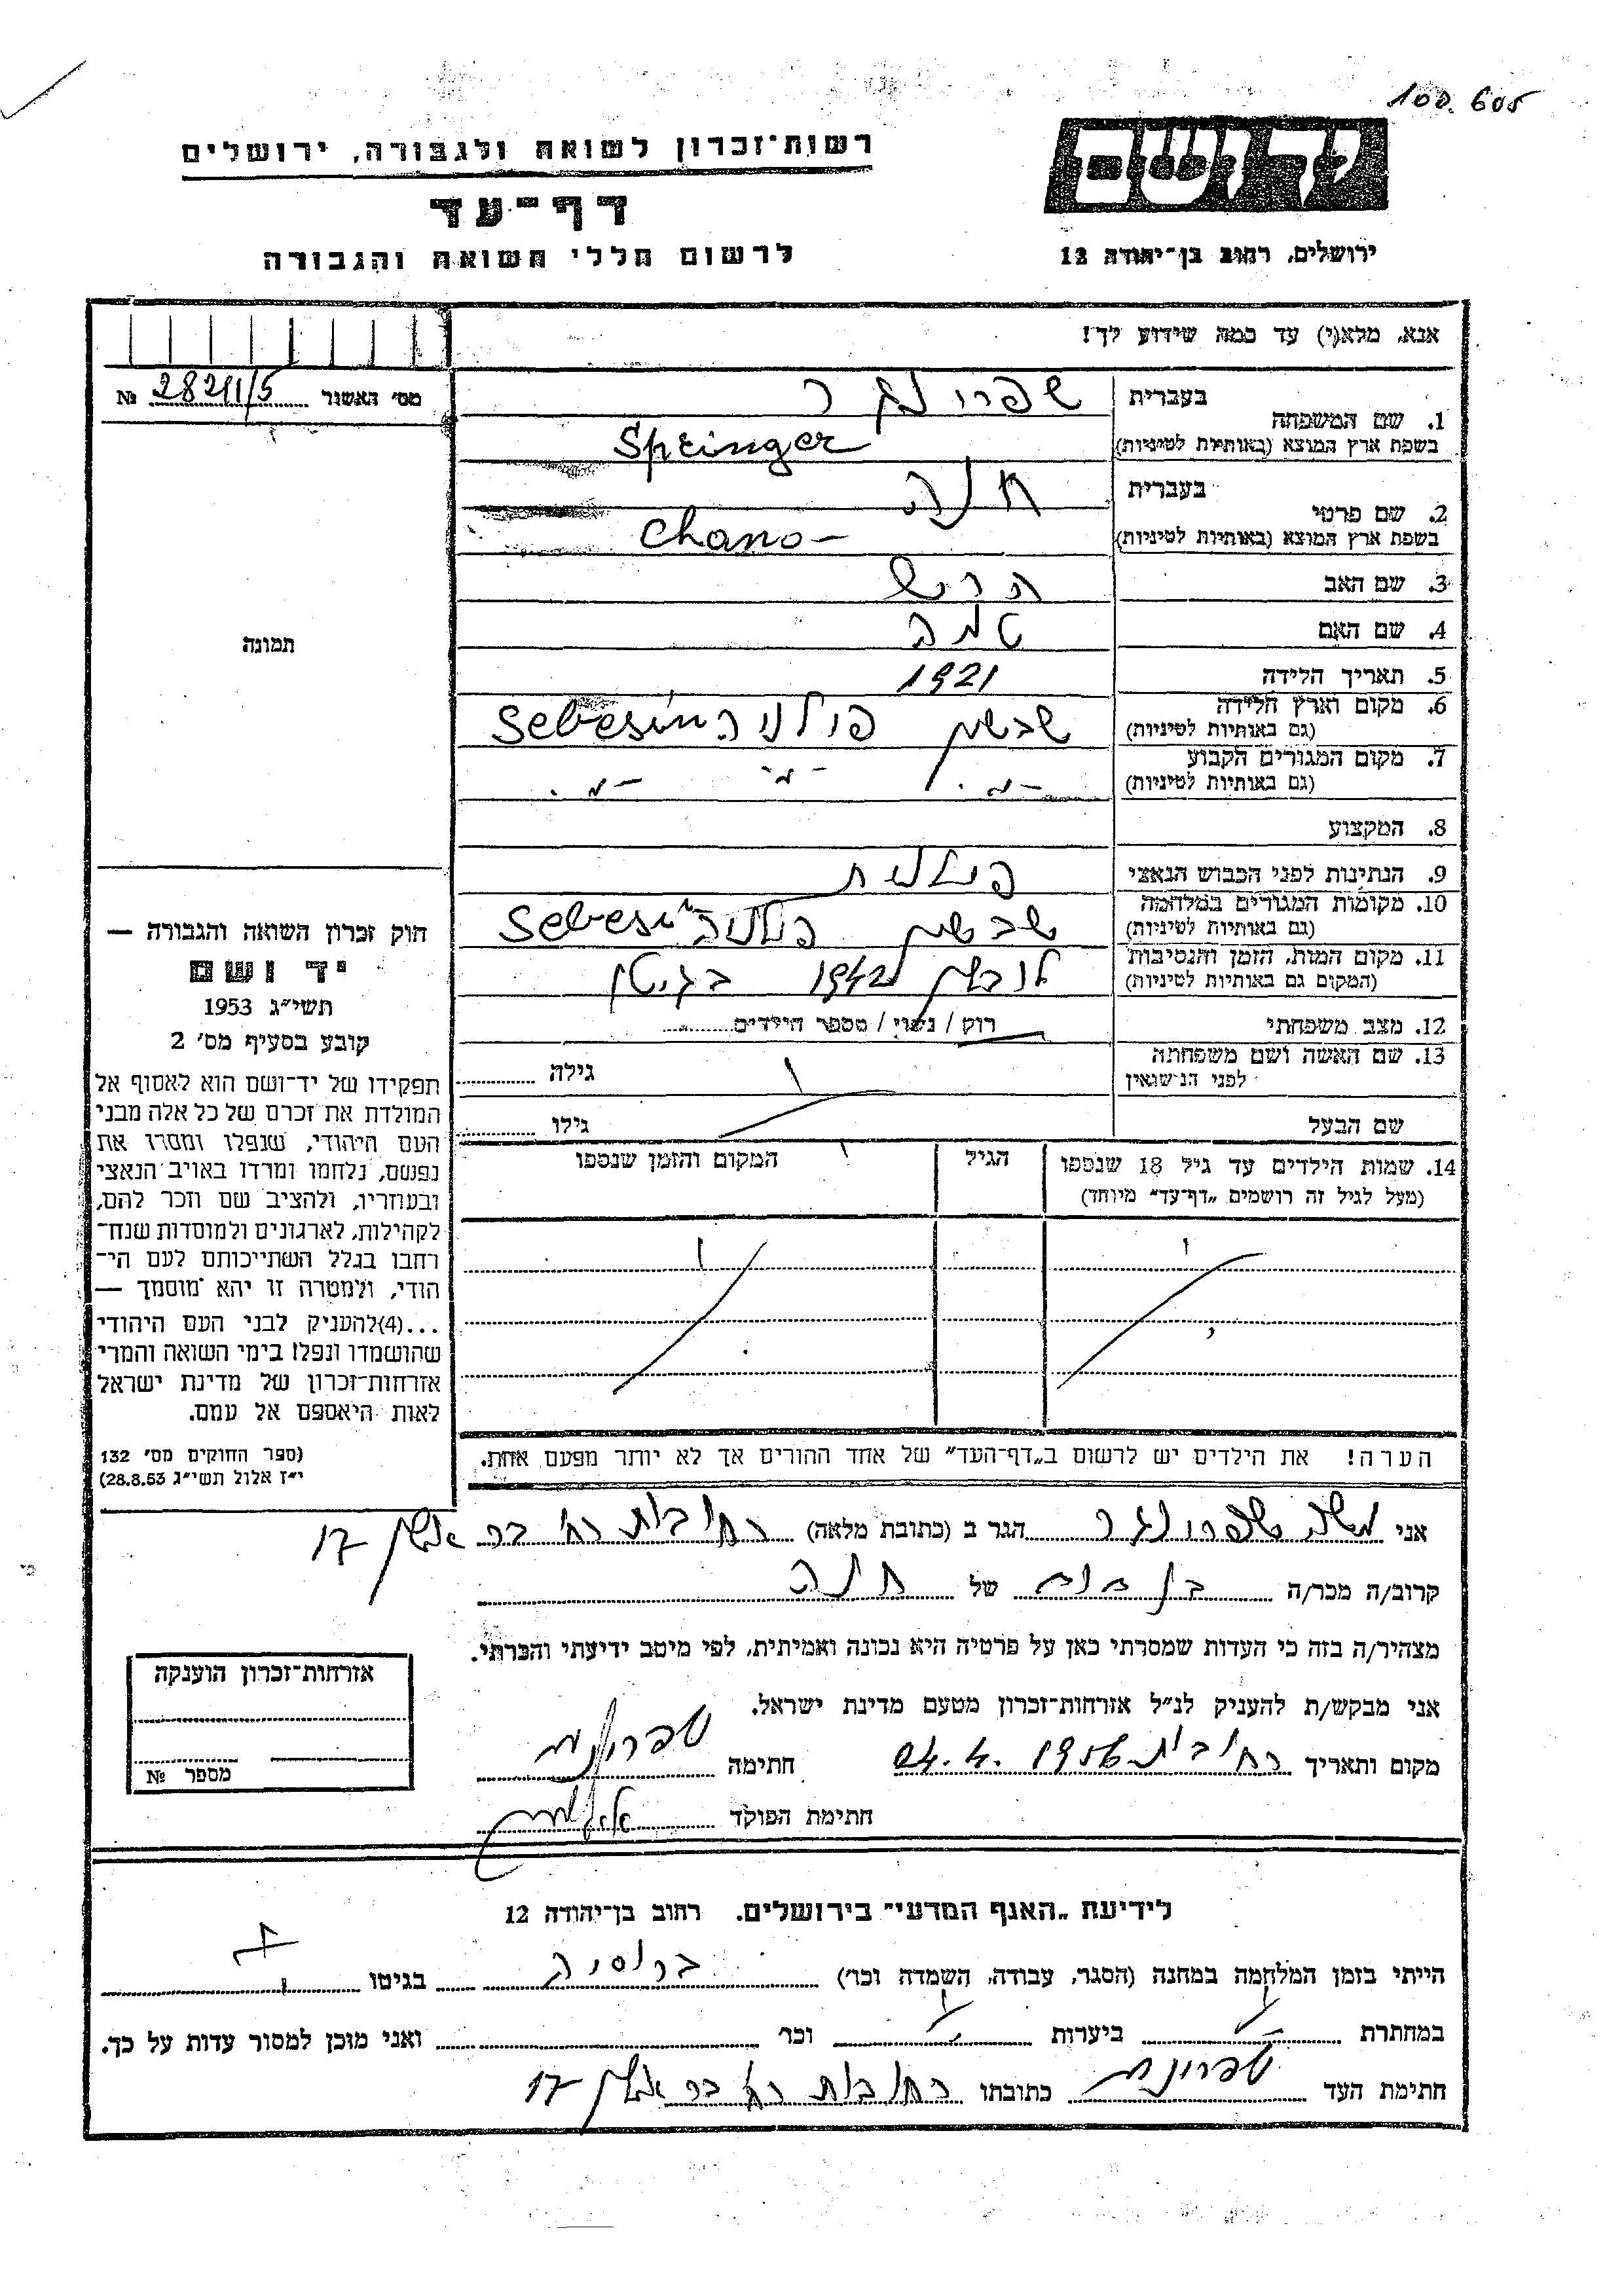 100.605
יד ושם
רשות-זכרון לשואה ולגבורה, ירושלים
דף-עד
ירושלים, רחוב בן-יהודה 12
לרשום חללי השואה והגבורה
אנא, מלא(י) עד כמה שידוע לך!
מס׳ האשור 282/1/5 №
1. שם המשפחה
בעברית שפרינגר
בשפת ארץ המוצא (באותיות לטיניות) Springer
2. שם פרטי
בעברית חנה
בשפת ארץ המוצא (באותיות לטיניות) Chano
3. שם האב הרש
4. שם האם
5. תאריך הלידה 1921
6. מקום וארץ הלידה שבשין פולניה Sebesin
(גם באותיות לטיניות)
7. מקום המגורים הקבוע
(גם באותיות לטיניות)
8. המקצוע
9. הנתינות לפני הכבוש הנאצי פולנית
10. מקומות המגורים במלחמה שבשין פולניה Sebesin
(גם באותיות לטיניות)
11. מקום המות, הזמן והנסיבות לובלין 1942 בגיטו
(המקום גם באותיות לטיניות)
12. מצב משפחתי רוק / נשוי / מספר הילדים
13. שם האשה ושם משפחתה גילה
לפני הנשואין
שם הבעל גילו
14. שמות הילדים עד גיל 18 שנספו הגיל המקום והזמן שנספו
(מעל לגיל זה רושמים „דף-עד״ מיוחד)
הערה! את הילדים יש לרשום ב„דף-העד״ של אחד ההורים אך לא יותר מפעם אחת.
תמונה
חוק זכרון השואה והגבורה —
יד ושם
תשי״ג 1953
קובע בסעיף מס׳ 2
תפקידו של יד-ושם הוא לאסוף אל
המולדת את זכרם של כל אלה מבני
העם היהודי, שנפלו ומסרו את
נפשם, נלחמו ומרדו באויב הנאצי
ובעוזריו, ולהציב שם וזכר להם,
לקהילות, לארגונים ולמוסדות שנח-
רחבו בגלל השתייכותם לעם הי-
הודי, ולמטרה זו יהא מוסמך —
...(4)להעניק לבני העם היהודי
שהושמדו ונפלו בימי השואה והמרי
אזרחות-זכרון של מדינת ישראל
לאות היאספם אל עמם.
(ספר החוקים מס׳ 132
י״ז אלול תשי״ג 28.8.53)
אני משה שפרינגר הגר ב (כתובת מלאה) רחובות רח׳ 17
קרוב/ה מכר/ה בן דוד של חנה
מצהיר/ה בזה כי העדות שמסרתי כאן על פרטיה היא נכונה ואמיתית, לפי מיטב ידיעתי והכרתי.
אני מבקש/ת להעניק לנ״ל אזרחות-זכרון מטעם מדינת ישראל.
מקום ותאריך רחובות 24.4.1956 חתימה
חתימת הפוקד
אזרחות-זכרון הוענקה
מספר №
לידיעת „האגף המדעי״ בירושלים. רחוב בן-יהודה 12
הייתי בזמן המלחמה במחנה (הסגר, עבודה, השמדה וכו׳) ברוסיה בגיטו
במחתרת ביערות וכו׳ ואני מוכן למסור עדות על כך.
חתימת העד כתובתו רחובות רח׳ 17